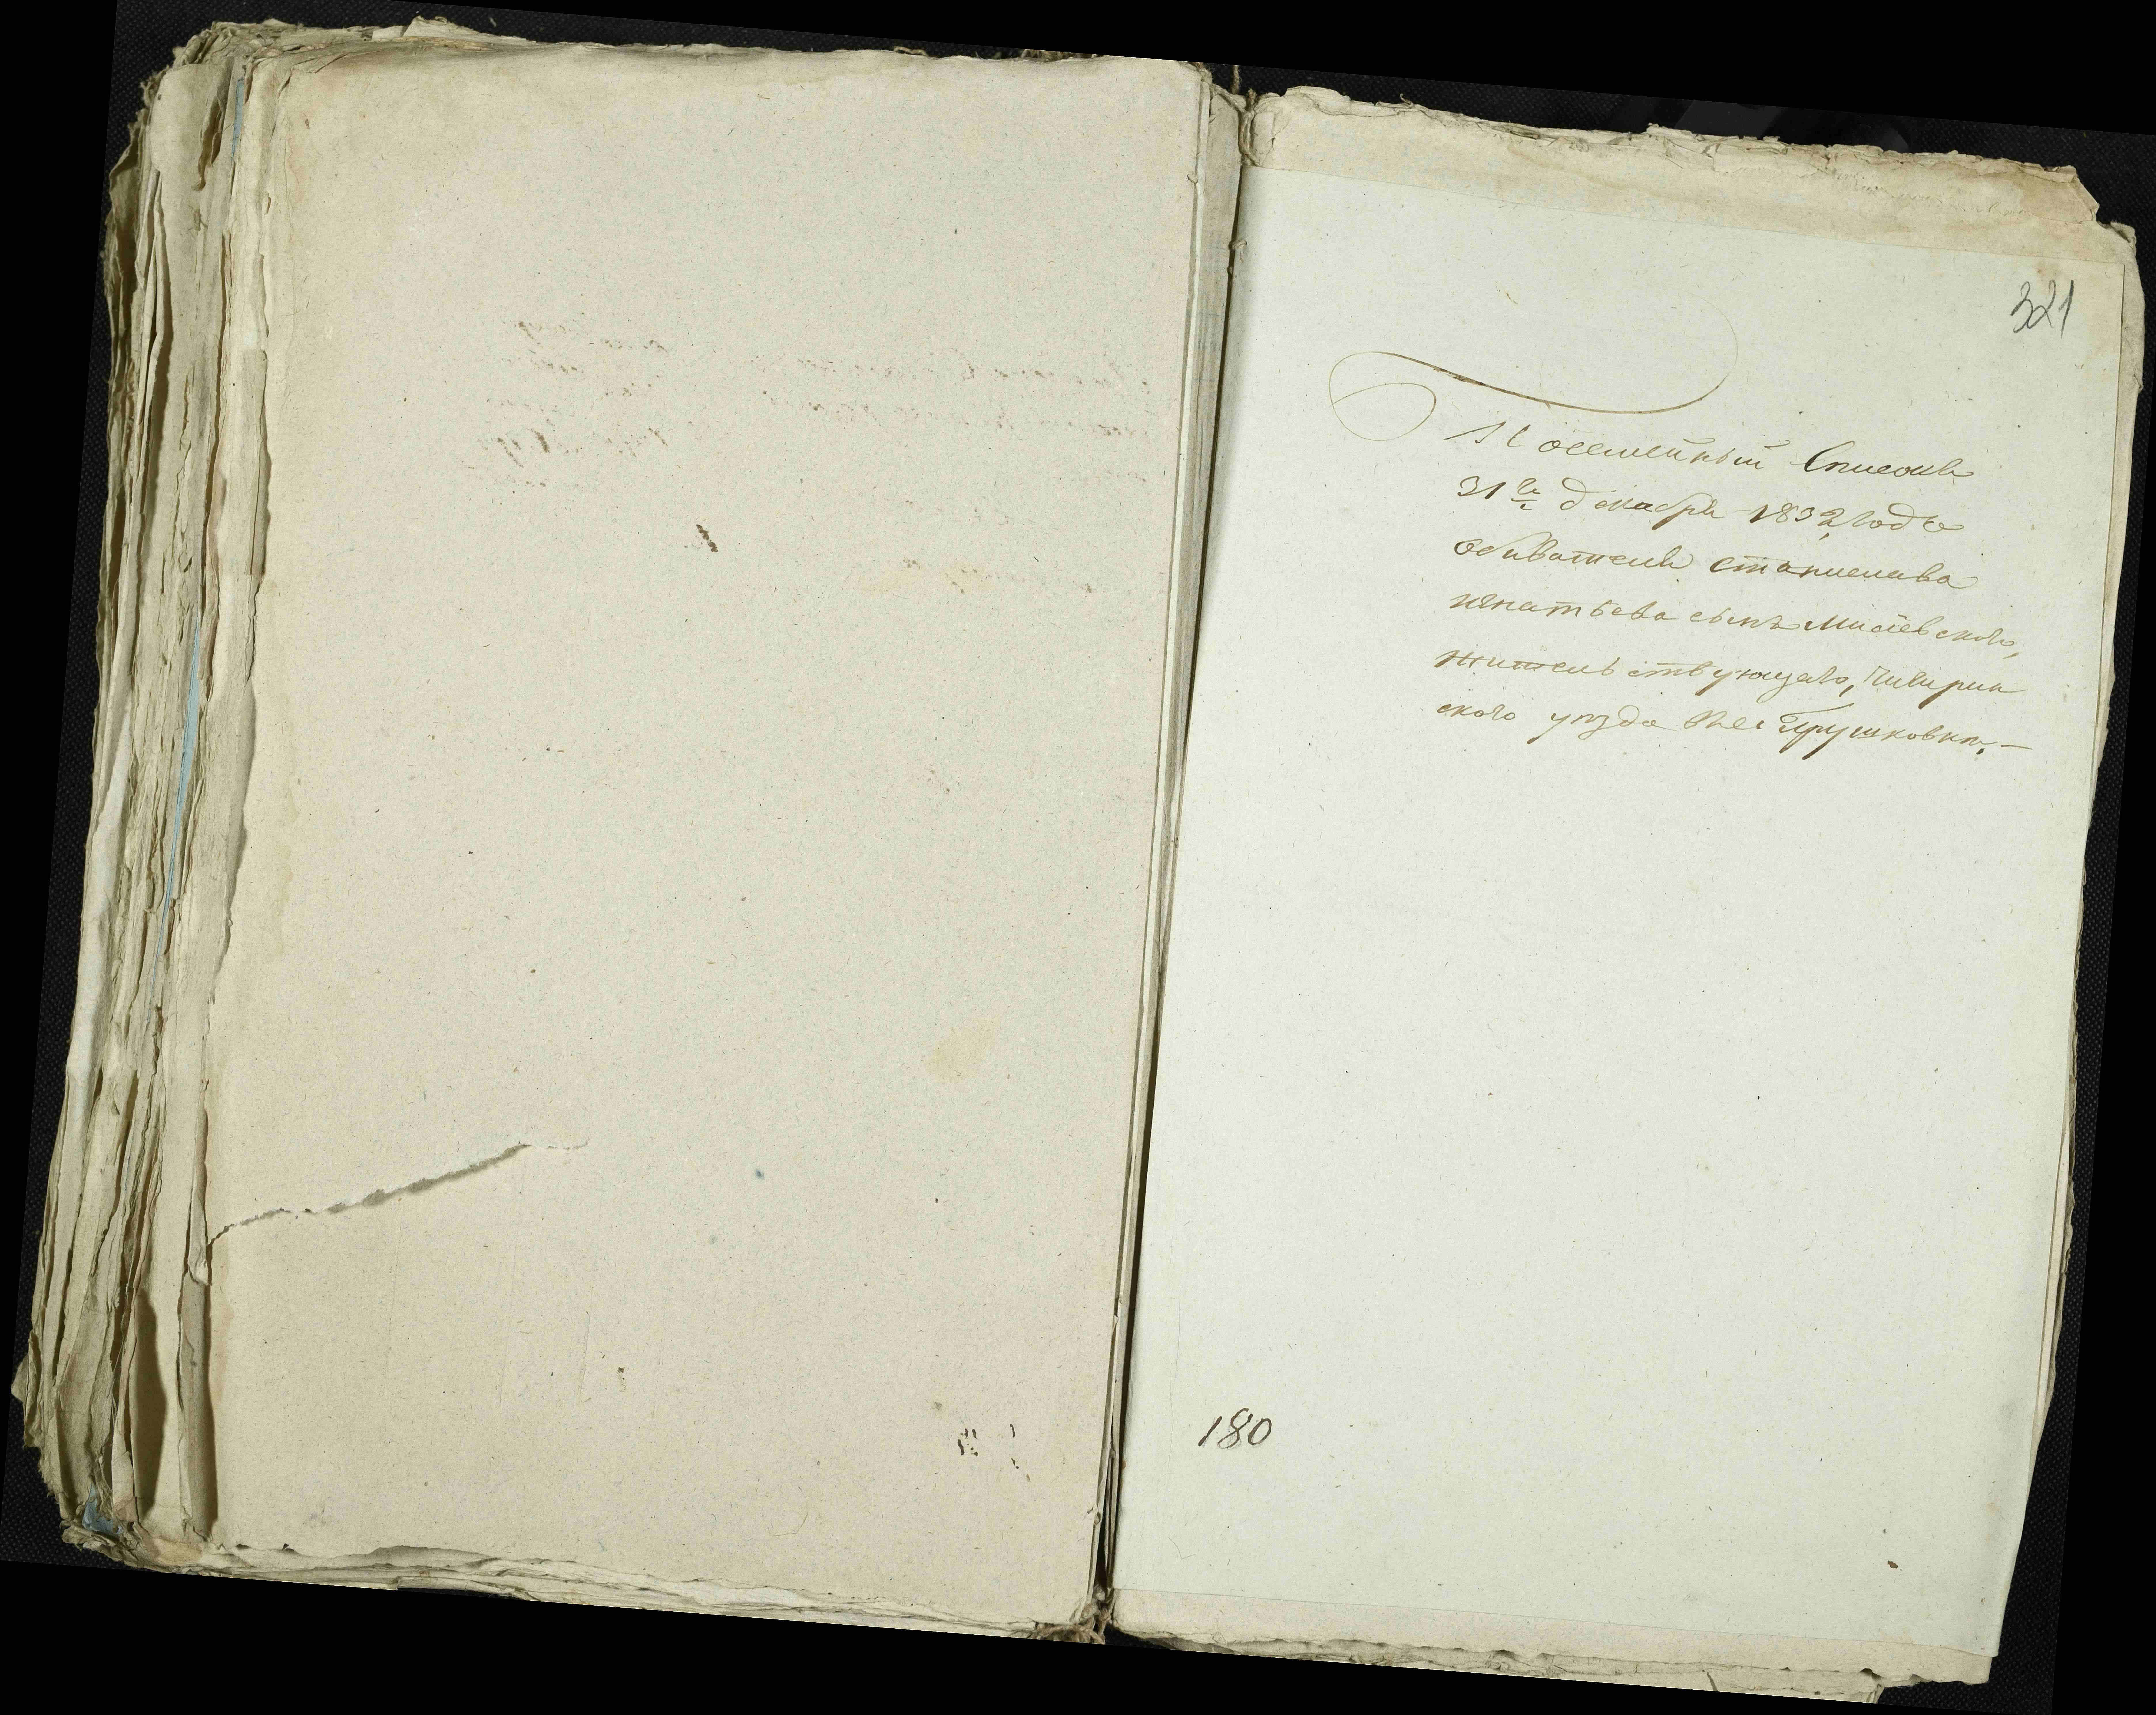 321
Посемейный Списокъ
31го декабря 1832 года
обивателя станислава
игнатьева сына Мисіевского,
жительствующаго, Чигирин
ского уѣзда въ с: Грушковкѣ. —
180